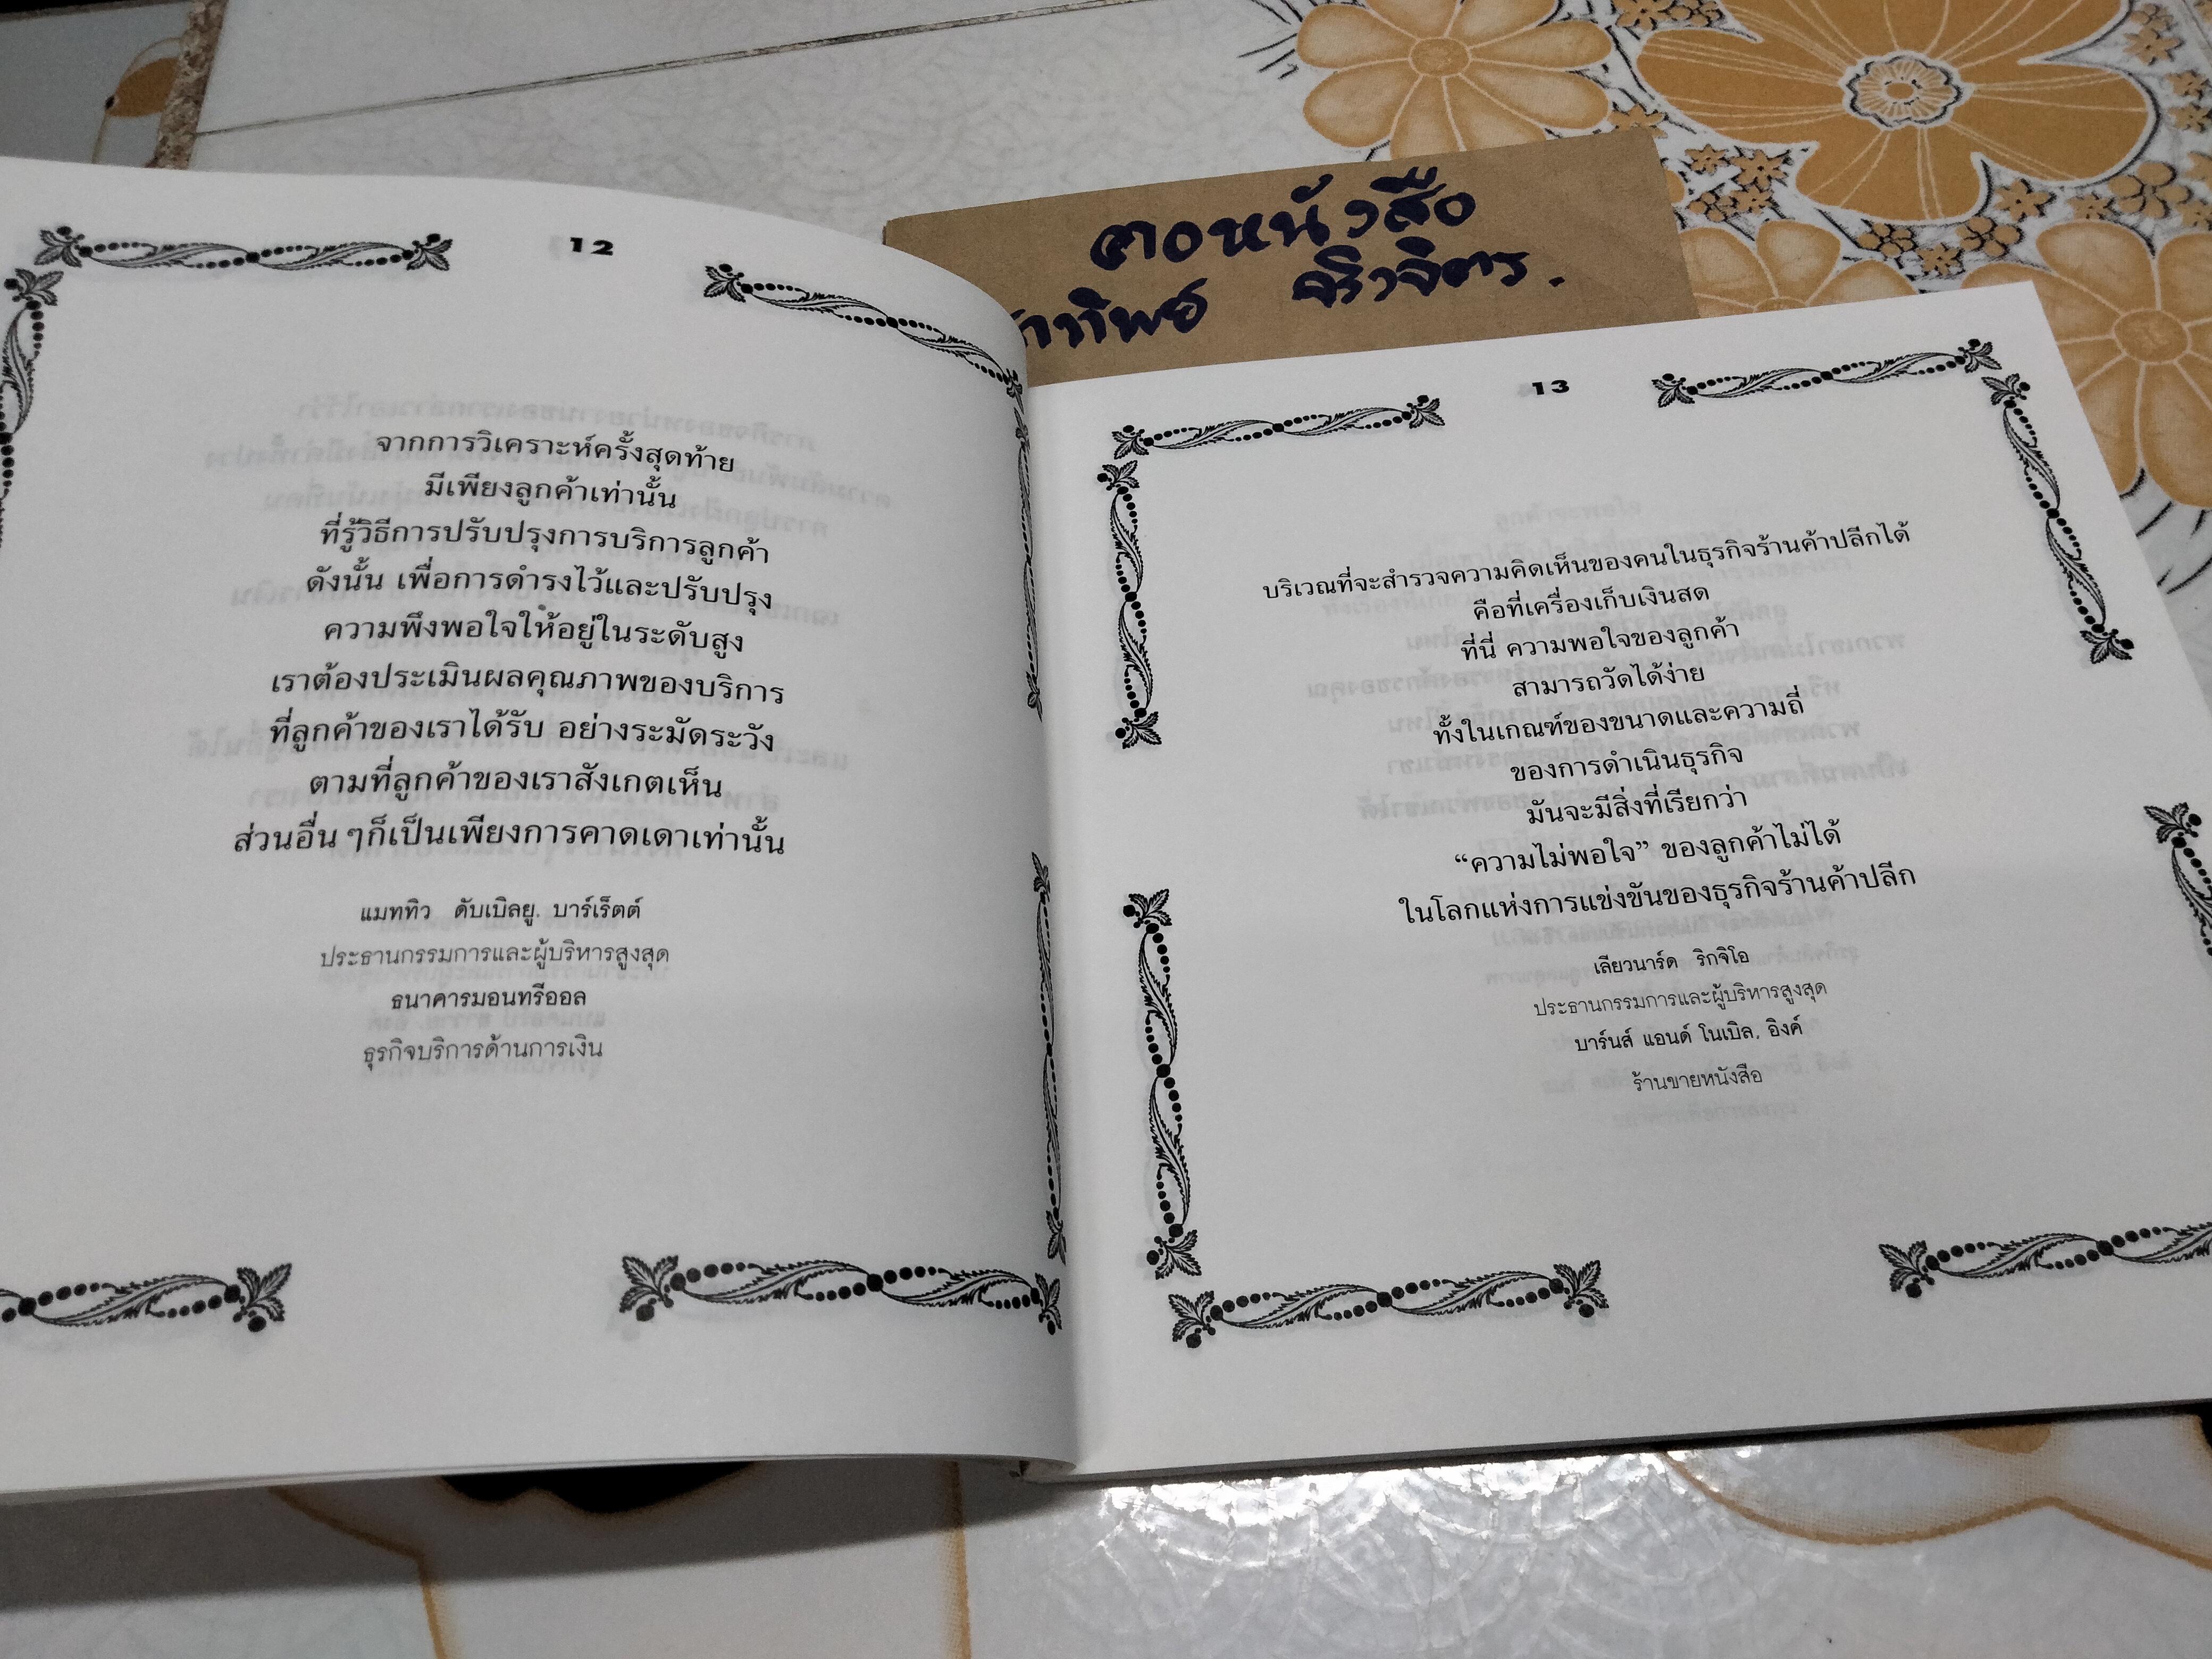 12
จากการวิเคราะห์ครั้งสุดท้าย
มีเพียงลูกค้าเท่านั้น
ที่รู้วิธีการปรับปรุงการบริการลูกค้า
ดังนั้น เพื่อการดำรงไว้และปรับปรุง
ความพึงพอใจให้อยู่ในระดับสูง
เราต้องประเมินผลคุณภาพของบริการ
ที่ลูกค้าของเราได้รับ อย่างระมัดระวัง
ตามที่ลูกค้าของเราสังเกตเห็น
ส่วนอื่น ๆก็เป็นเพียงการคาดเดาเท่านั้น
แมททิว ดับเบิลยู. บาร์เร็ตต์
ประธานกรรมการและผู้บริหารสูงสุด
ธนาคารมอนทรีออล
ธุรกิจบริการด้านการเงิน
คอหนังสือ
13
บริเวณที่จะสำรวจความคิดเห็นของคนในธุรกิจร้านค้าปลีกได้
คือที่เครื่องเก็บเงินสด
ที่นี่ ความพอใจของลูกค้า
สามารถวัดได้ง่าย
ทั้งในเกณฑ์ของขนาดและความถี่
ของการดำเนินธุรกิจ
มันจะมีสิ่งที่เรียกว่า
“ความไม่พอใจ” ของลูกค้าไม่ได้
ในโลกแห่งการแข่งขันของธุรกิจร้านค้าปลีก
เลียวนาร์ด ริกจิโอ
ประธานกรรมการและผู้บริหารสูงสุด
บาร์นส์ แอนด์ โนเบิล, อิงค์
ร้านขายหนังสือ